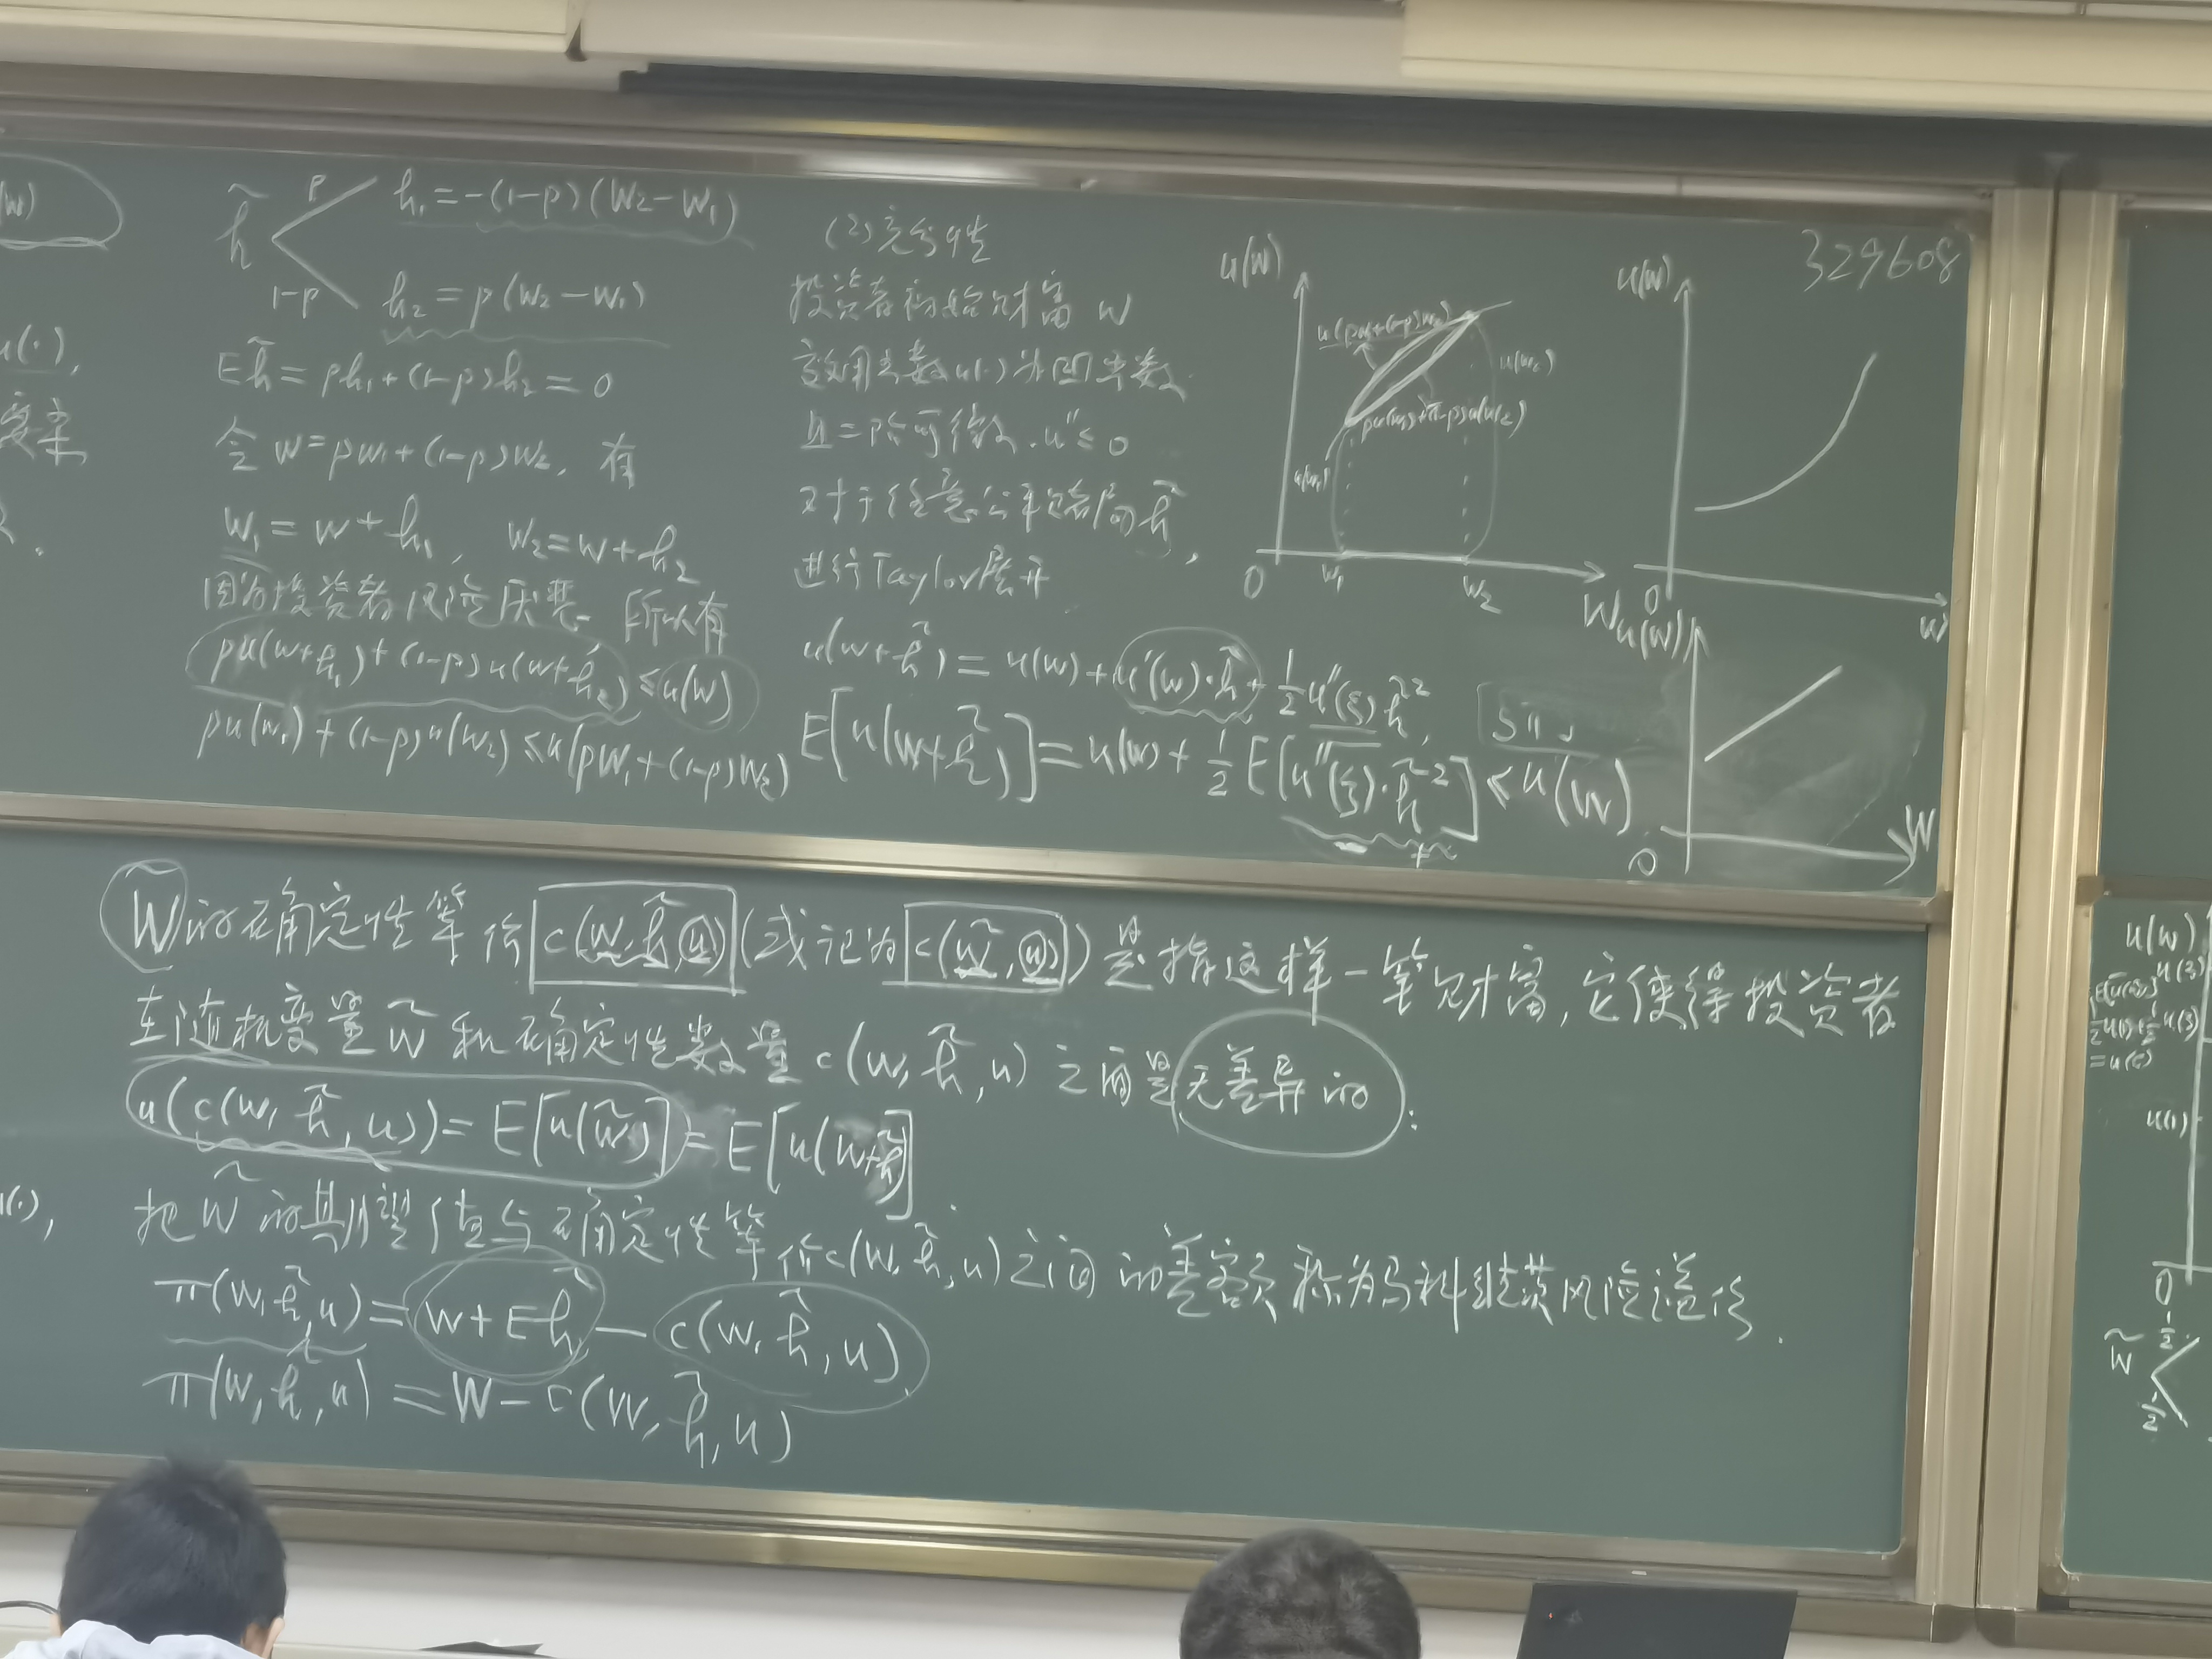 (w)
h̃ p h₁=-(1-p)(W₂-W₁)
1-p h₂=p(W₂-W₁)
Eh̃=ph₁+(1-p)h₂=0
令 w=pw₁+(1-p)w₂, 有
W₁=w+h₁, W₂=w+h₂
因为投资者风险厌恶, 所以有
pu(w+h₁)+(1-p)u(w+h₂)≤u(w)
pu(w₁)+(1-p)u(w₂)≤u(pW₁+(1-p)W₂)
u(·),
(2)充分性
投资者初始财富 w
效用函数u(·)为凹函数
且二阶可微. u"≤0
对于任意公平赌局h̃,
进行Taylor展开
u(w+h̃)=u(w)+u'(w)·h̃+½u"(ξ)h̃²,
E[u(w+h̃)]=u(w)+½E[u"(ξ)·h̃²]≤u(w).
u(w)
u(pw₁+(1-p)w₂)
u(w₂)
pu(w₁)+(1-p)u(w₂)
u(w₁)
0 w₁ w₂ W
329608
u(w)
0 w
u(w)
0 W
W̃的确定性等价 c(w,h̃,u) (或记为 c(w̃,u)) 是指这样一笔财富, 它使得投资者
在随机变量 w̃ 和确定性数量 c(w,h̃,u) 之间是无差异的:
u(c(w,h̃,u))=E[u(w̃)]=E[u(w+h̃)].
把 w̃ 的期望值与确定性等价c(w,h̃,u)之间的差额称为马科维茨风险溢价.
π(w,h̃,u)=w+Eh̃-c(w,h̃,u)
π(w,h̃,u)=W-c(w,h̃,u)
u(w)
u(3)
=u(c)
u(1)
0
w̃ ½
½